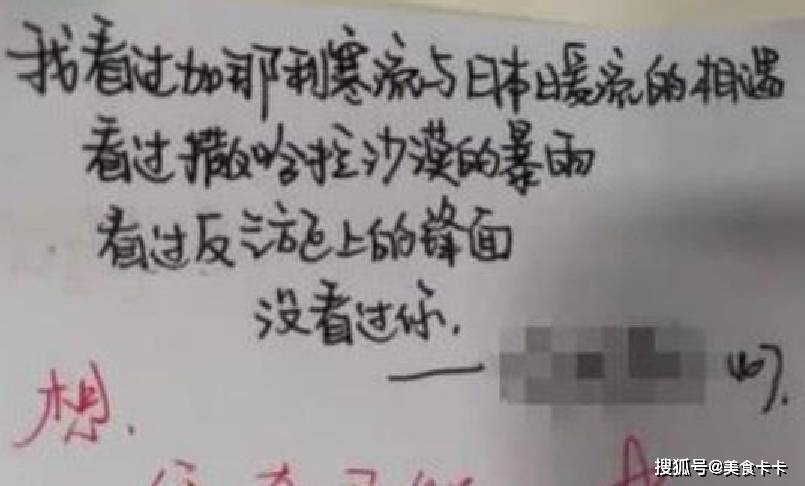 我看过加那利寒流与日本暖流的相遇
看过撒哈拉沙漠的暴雨
看过反气旋上的锋面
没看过你.
——
想.
搜狐号@美食卡卡